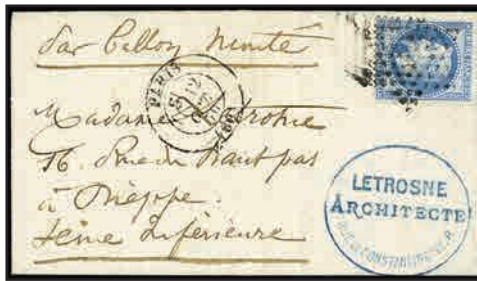 Par Ballon Monté
PARIS
Madame Letrosne
16. Rue du haut pas
à Dieppe.
Seine Inférieure
LETROSNE
ARCHITECTE
RUE DE CONSTANTINE